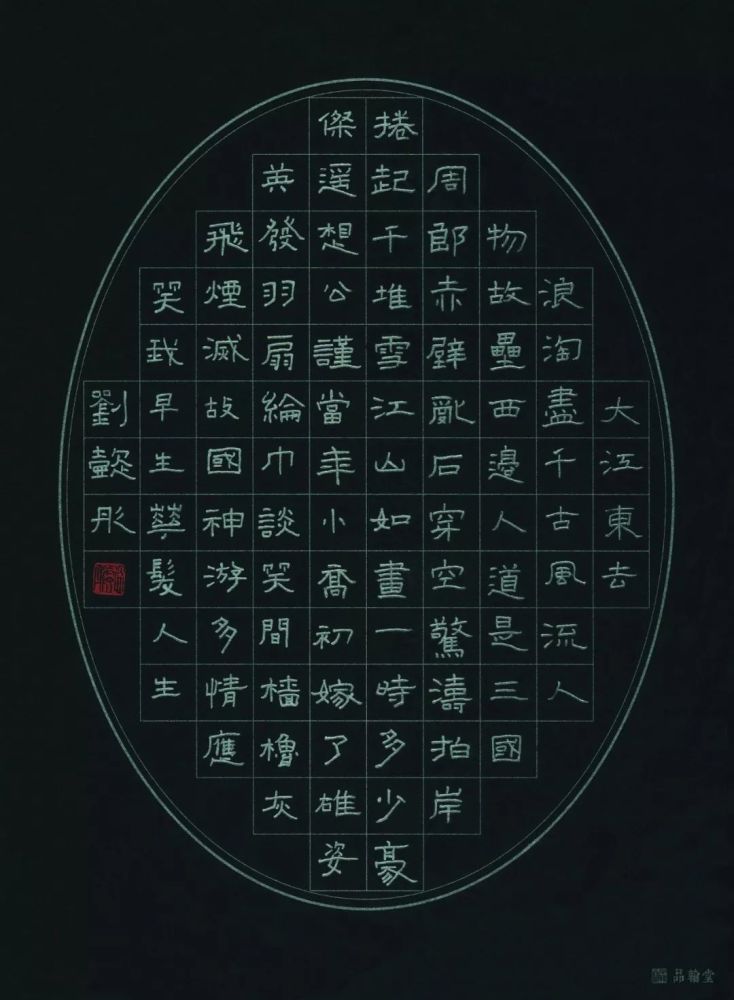 大江東去
浪淘盡千古風流人
物故壘西邊人道是三國
周郎赤壁亂石穿空驚濤拍岸
捲起千堆雪江山如畫一時多少豪
傑遥想公謹當年小喬初嫁了雄姿
英發羽扇綸巾談笑間檣櫓灰
飛煙滅故國神游多情應
笑我早生華髮人生
劉懿彤
品翰堂